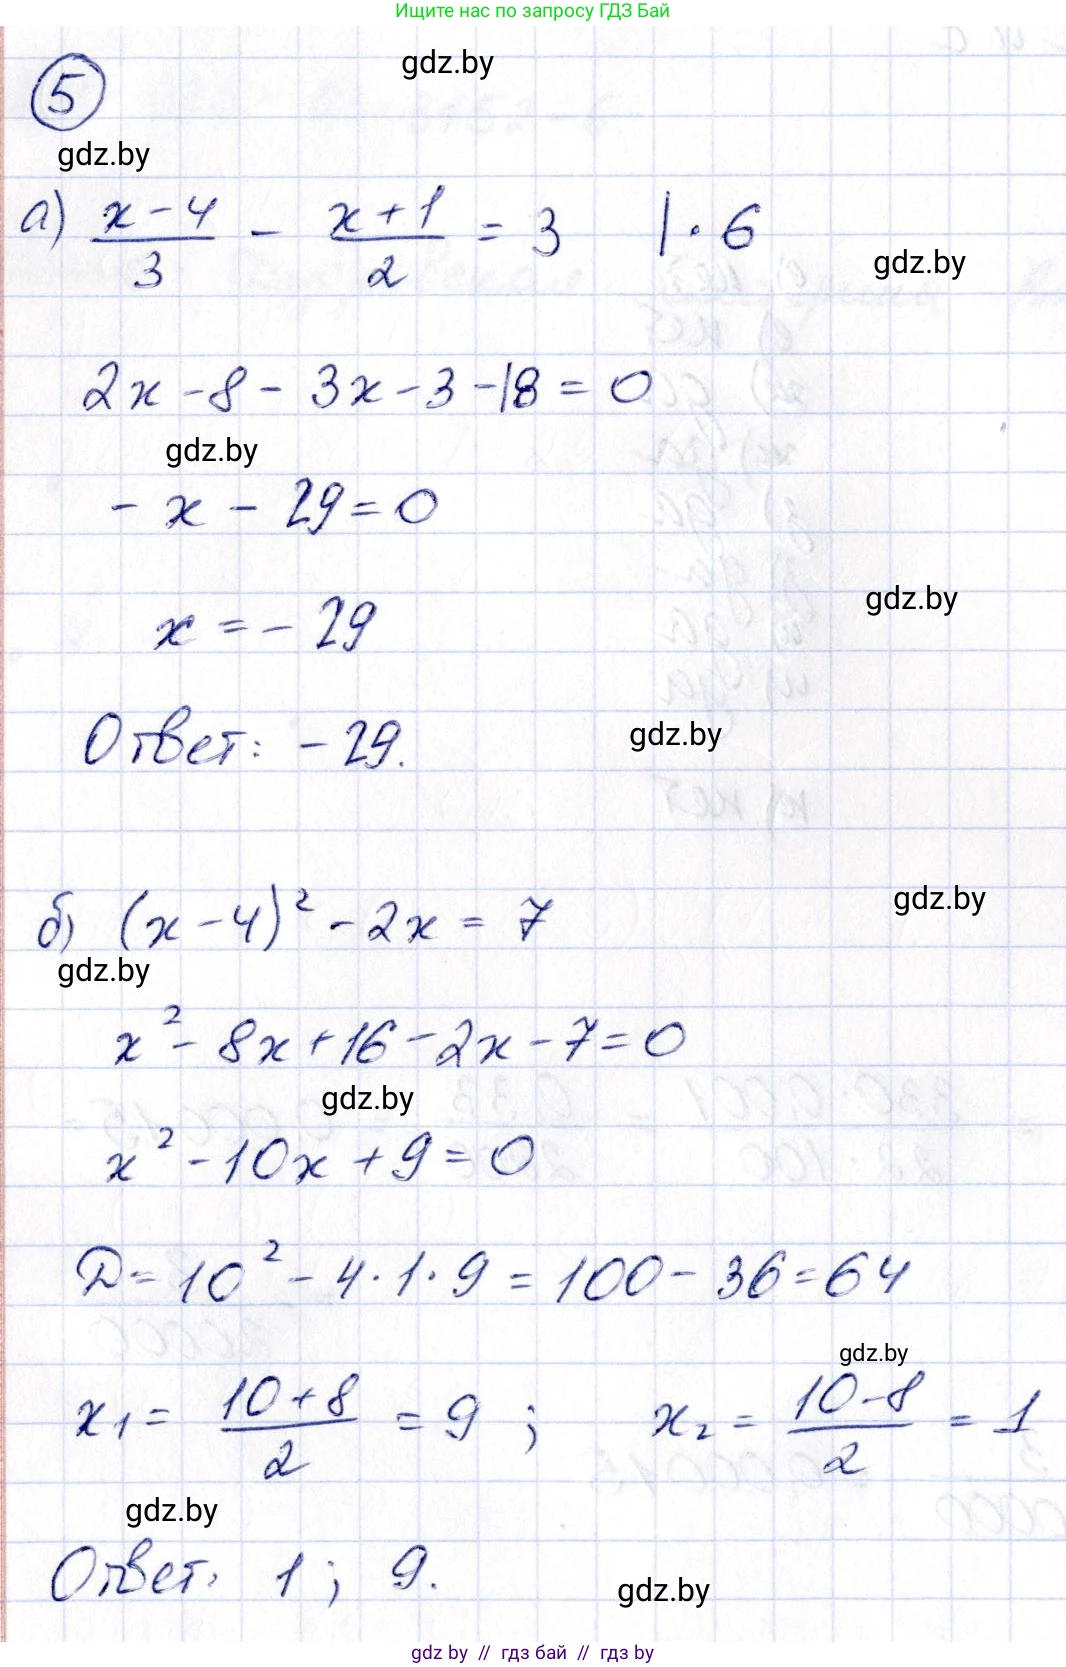 Ищите нас по запросу ГДЗ Бай
gdz.by
5
gdz.by
а) (x-4)/3 - (x+1)/2 = 3 | · 6
gdz.by
2x - 8 - 3x - 3 - 18 = 0
gdz.by
- x - 29 = 0
gdz.by
x = - 29
Ответ: - 29.
gdz.by
gdz.by
б) (x-4)² - 2x = 7
gdz.by
x² - 8x + 16 - 2x - 7 = 0
gdz.by
x² - 10x + 9 = 0
D = 10² - 4 · 1 · 9 = 100 - 36 = 64
gdz.by
x₁ = (10+8)/2 = 9 ; x₂ = (10-8)/2 = 1
gdz.by
Ответ: 1 ; 9.
gdz.by
gdz by // гдз бай // гдз by